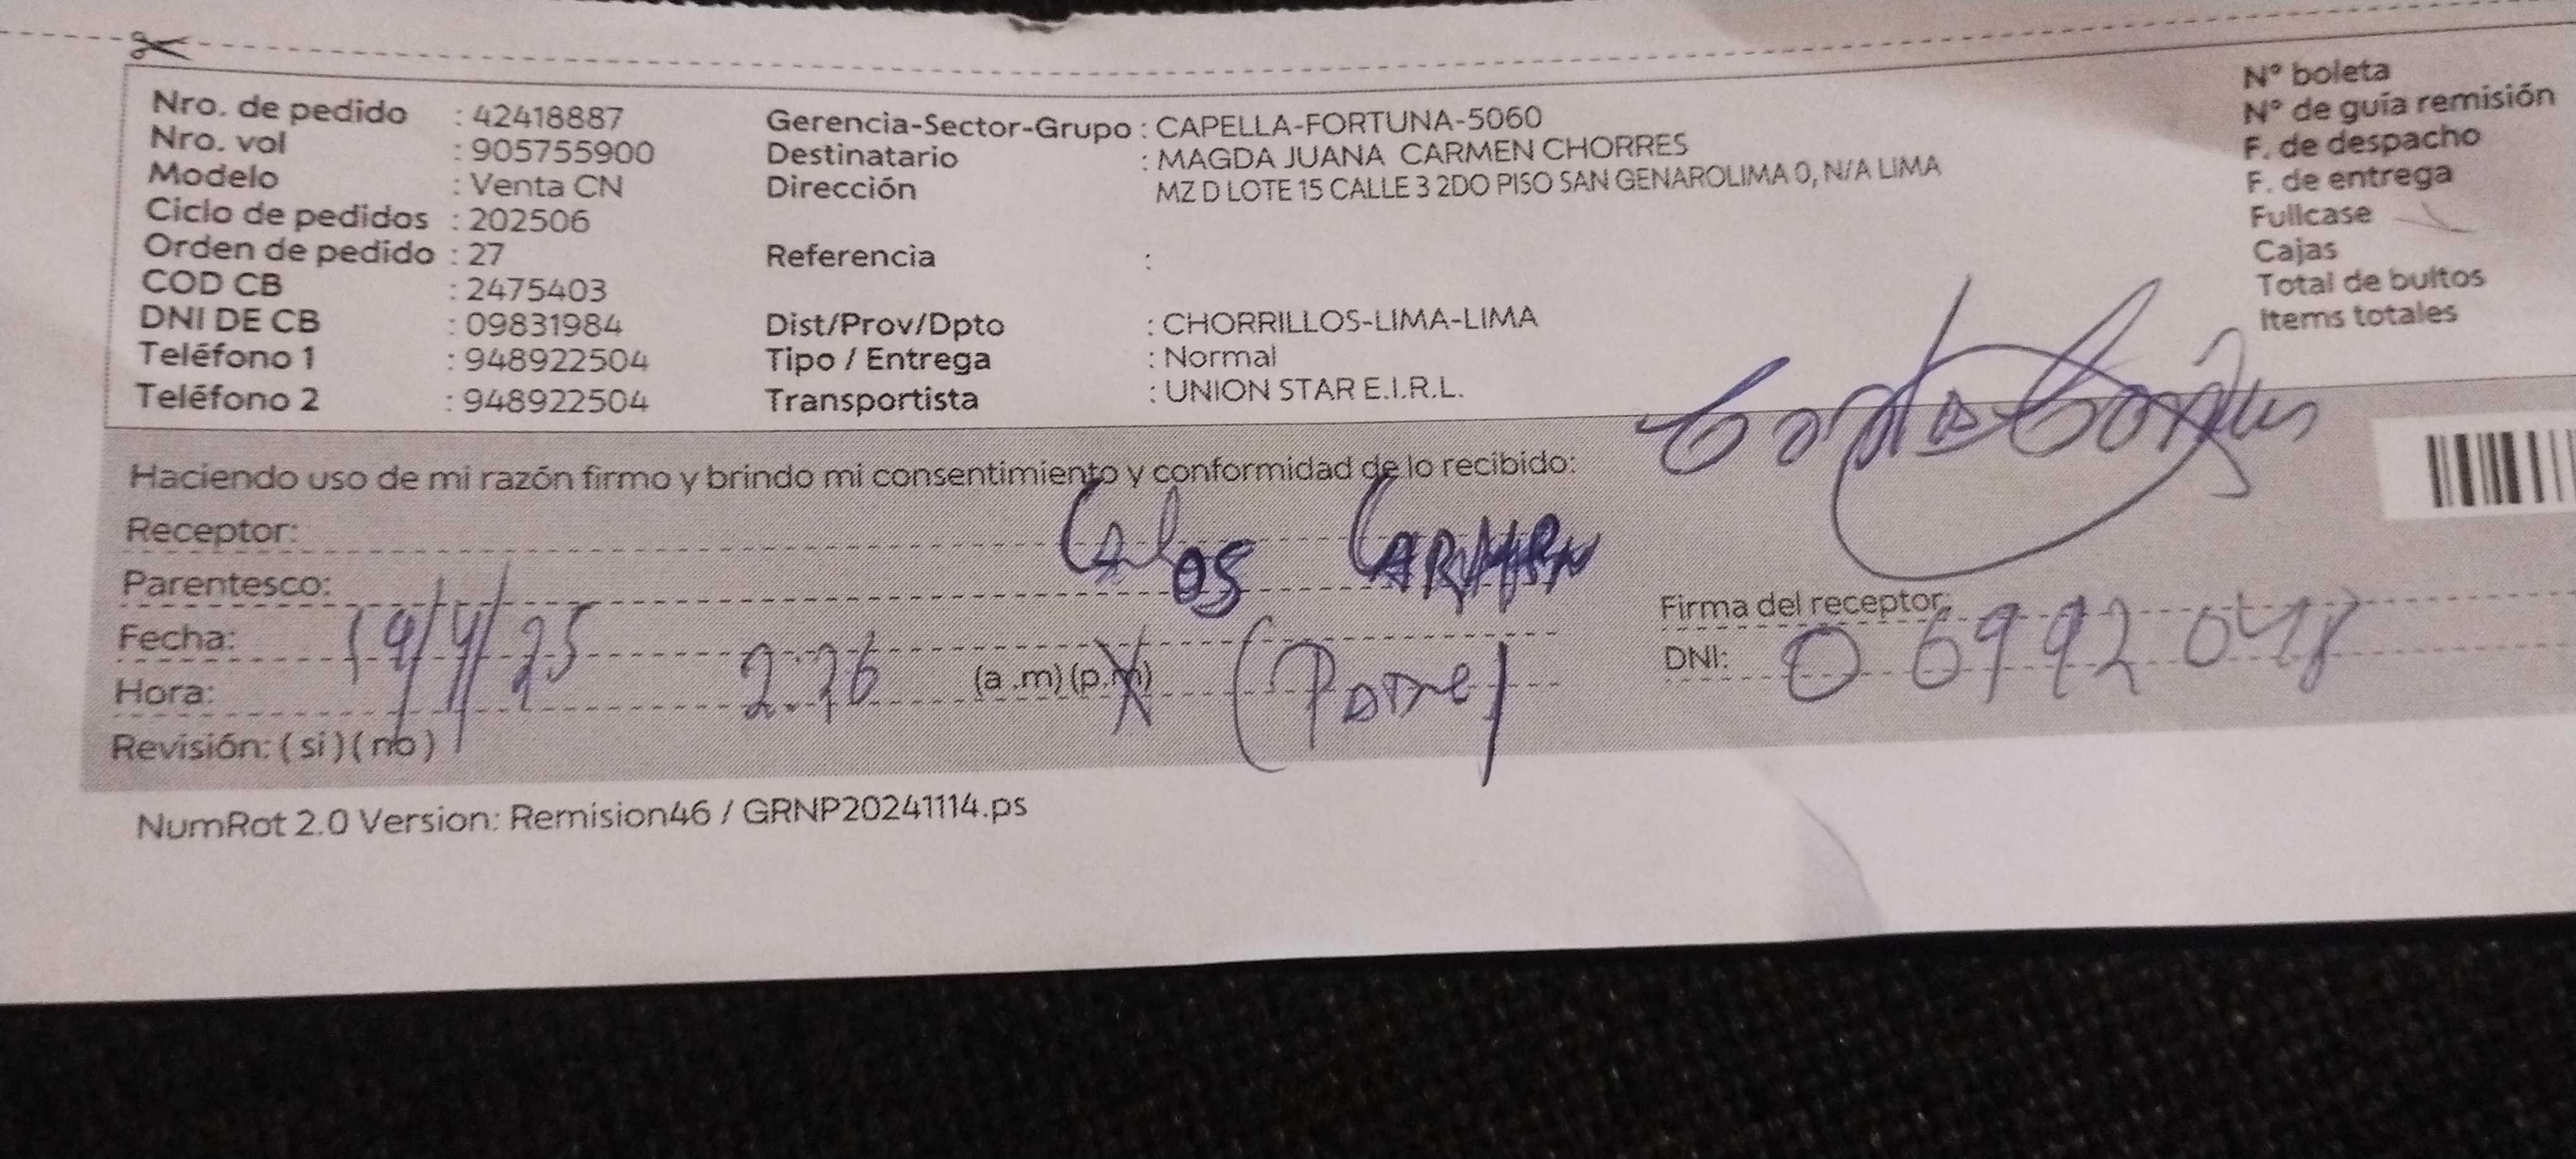 Nro. de pedido : 42418887
Nro. vol : 905755900
Modelo : Venta CN
Ciclo de pedidos : 202506
Orden de pedido : 27
COD CB : 2475403
DNI DE CB : 09831984
Teléfono 1 : 948922504
Teléfono 2 : 948922504
Gerencia-Sector-Grupo : CAPELLA-FORTUNA-5060
Destinatario : MAGDA JUANA CARMEN CHORRES
Dirección MZ D LOTE 15 CALLE 3 2DO PISO SAN GENAROLIMA 0, N/A LIMA
Referencia :
Dist/Prov/Dpto : CHORRILLOS-LIMA-LIMA
Tipo / Entrega : Normal
Transportista : UNION STAR E.I.R.L.
N° boleta
N° de guía remisión
F. de despacho
F. de entrega
Fullcase
Cajas
Total de bultos
Items totales
Haciendo uso de mi razón firmo y brindo mi consentimiento y conformidad de lo recibido:
Receptor: Carlos CARMEN
Parentesco:
Fecha: 19/4/25
Hora: 2:26 (a.m) (p.m) (Padre)
Revisión: (si) (no)
Firma del receptor:
DNI: 06992048
NumRot 2.0 Version: Remision46 / GRNP20241114.ps